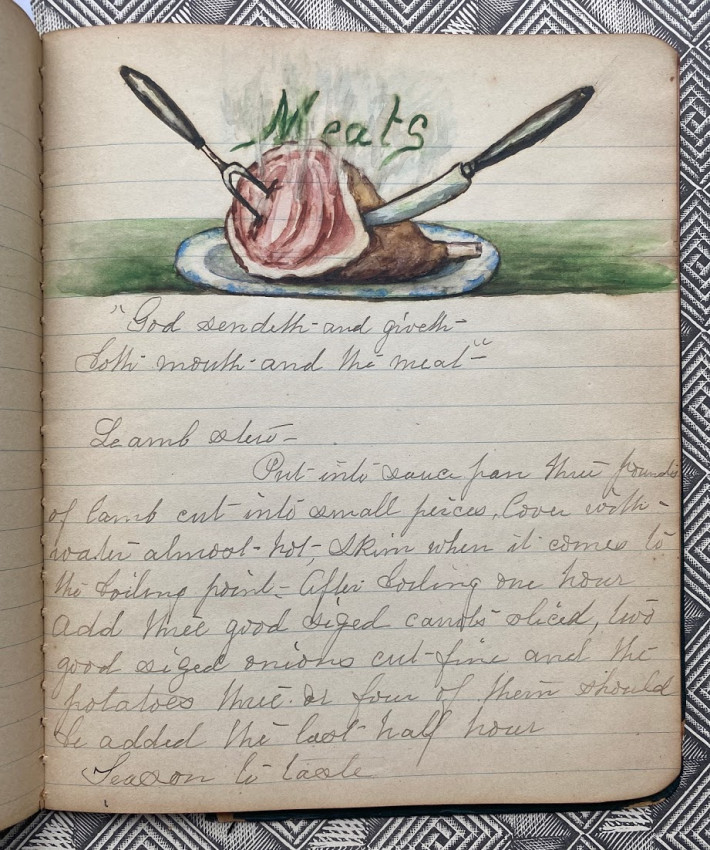 Meats
"God sendeth and giveth
both mouth and the meat"
Leamb stew-
Put into sauce pan three pounds
of lamb cut into small peices, Cover with
water almost hot, Skim when it comes to
the boiling point- After boiling one hour
Add three good sized carrots sliced, two
good sized onions cut fine and the
potatoes three or four of them should
be added the last half hour
Season to taste